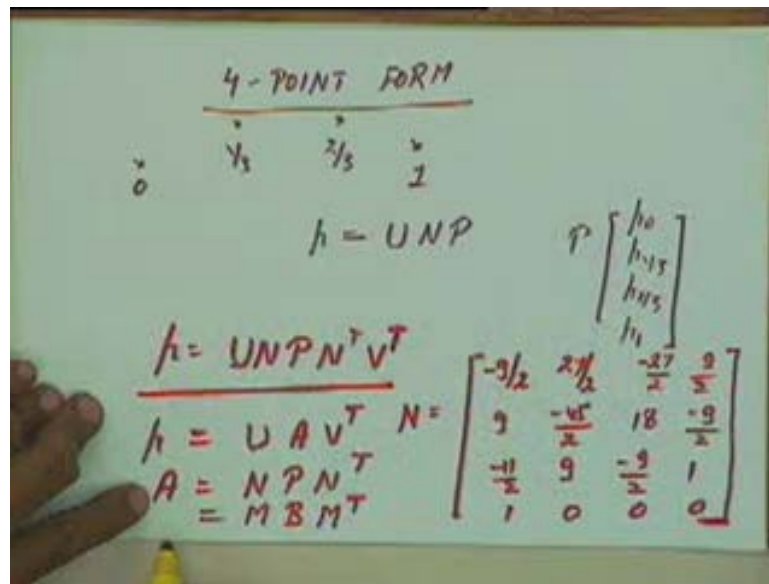 4-POINT FORM
0 1/3 2/3 1
p = UNP
P [ p0 p1/3 p2/3 p1 ]
p = UNPN^T V^T
p = U A V^T
A = N P N^T
= M B M^T
N = [
-9/2 27/2 -27/2 9/2
9 -45/2 18 -9/2
-11/2 9 -9/2 1
1 0 0 0 ]